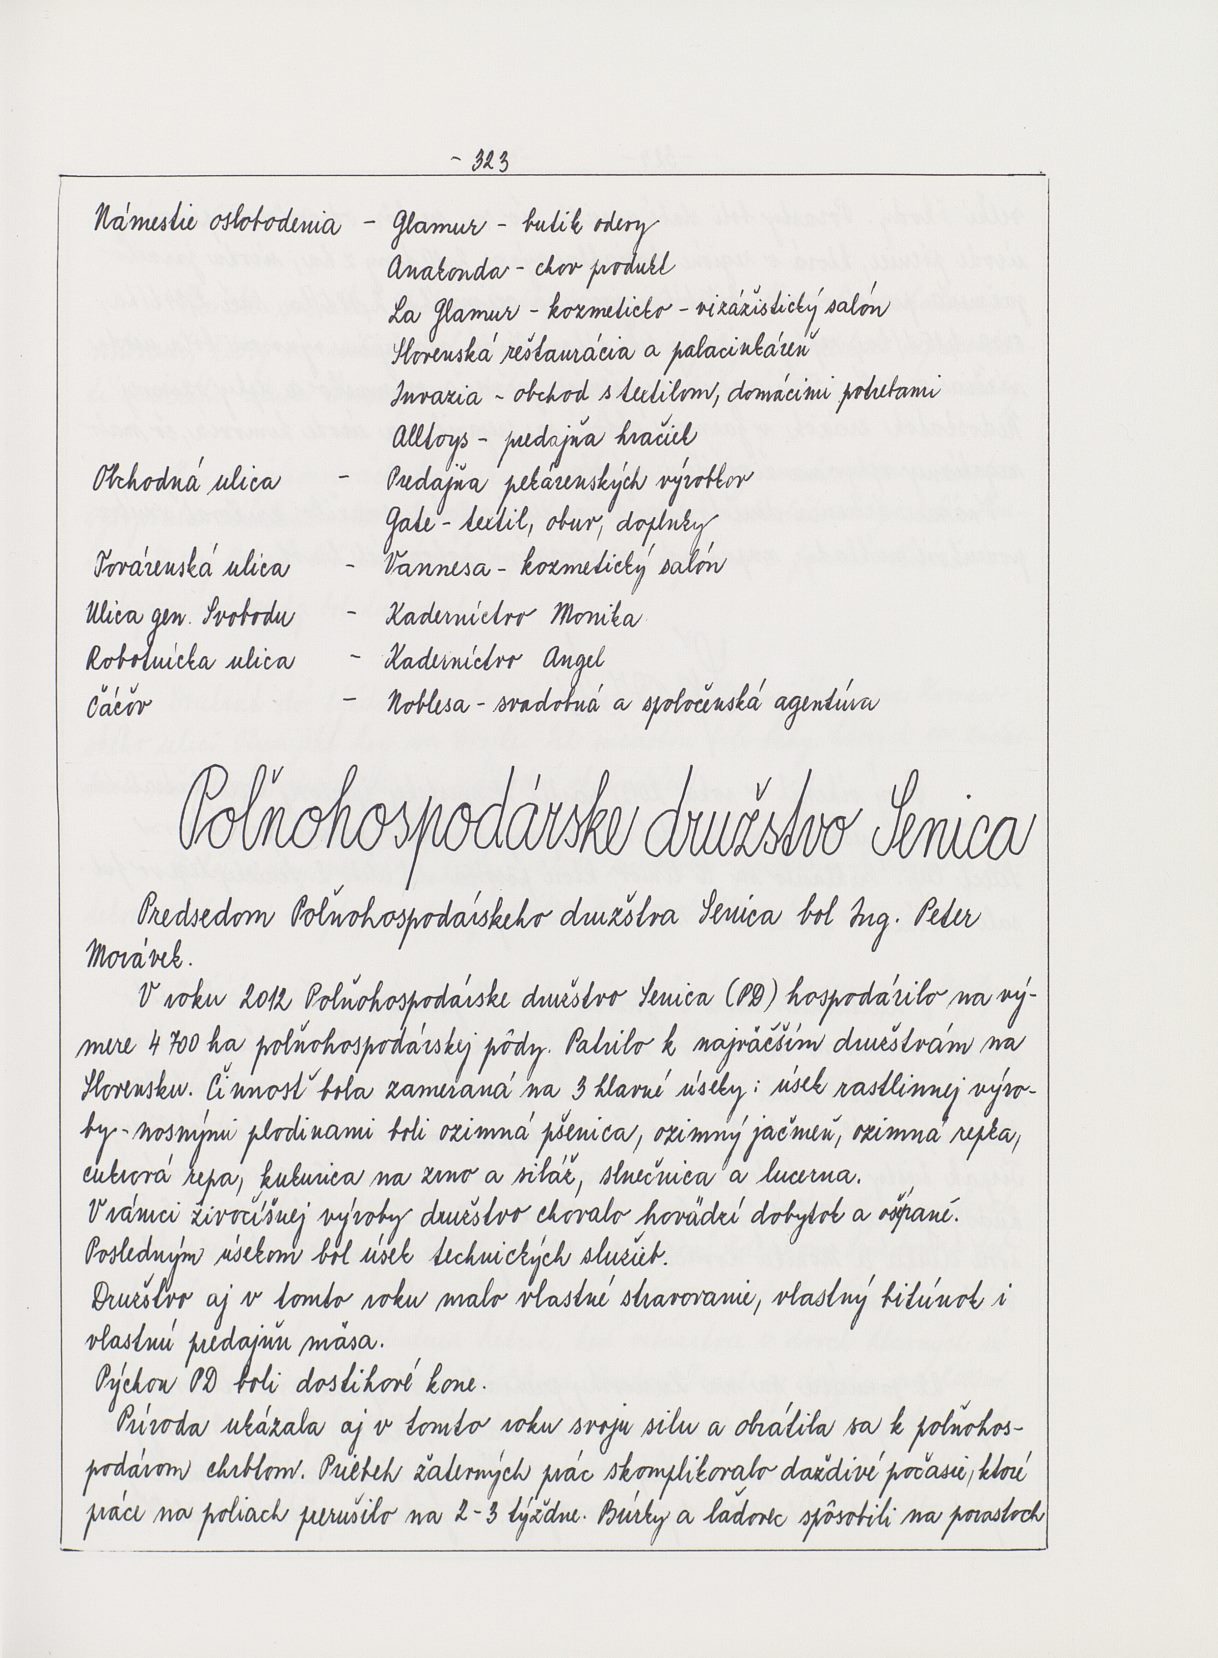 - 323
Námestie oslobodenia - Glamur - butik odevy
Anakonda - chov produkt
La Glamur - kozmeticko - vizážistický salón
Slovenská reštaurácia a palacinkáreň
Invazia - obchod s textilom, domácimi potrebami
Alltoys - predajňa hračiek
Obchodná ulica - Predajňa pekárenských výrobkov
Gate - textil, obuv, doplnky
Továrenská ulica - Vannesa - kozmetický salón
Ulica gen. Svobodu - Kaderníctvo Monika
Robotnícka ulica - Kaderníctvo Angel
Čáčov - Noblesa - svadobná a spoločenská agentúra
Poľnohospodárske družstvo Senica
Predsedom Poľnohospodárskeho družstva Senica bol Ing. Peter
Morávek.
V roku 2012 Poľnohospodárske družstvo Senica (PD) hospodárilo na vý-
mere 4 700 ha poľnohospodárskej pôdy. Patrilo k najväčším družstvám na
Slovensku. Činnosť bola zameraná na 3 hlavné úseky: úsek rastlinnej výro-
by - nosnými plodinami boli ozimná pšenica, ozimný jačmeň, ozimná repka,
cukrová repa, kukurica na zrno a siláž, slnečnica a lucerna.
V rámci živočíšnej výroby družstvo chovalo hovädzí dobytok a ošípané.
Posledným úsekom bol úsek technických služieb.
Družstvo aj v tomto roku malo vlastné stravovanie, vlastný bitúnok i
vlastnú predajňu mäsa.
Pýchou PD boli dostihové kone.
Príroda ukázala aj v tomto roku svoju silu a obrátila sa k poľnohos-
podárom chrbtom. Priebeh žatevných prác skomplikovalo daždivé počasie, ktoré
práce na poliach prerušilo na 2-3 týždne. Búrky a ľadovec spôsobili na porastoch